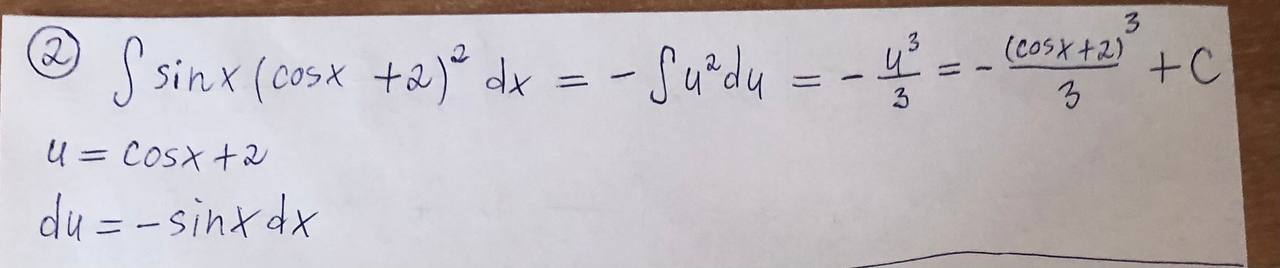 ② ∫ sinx (cosx +2)² dx = - ∫ u² du = - u³/3 = - (cosx+2)³/3 + C
u = cosx + 2
du = - sinx dx